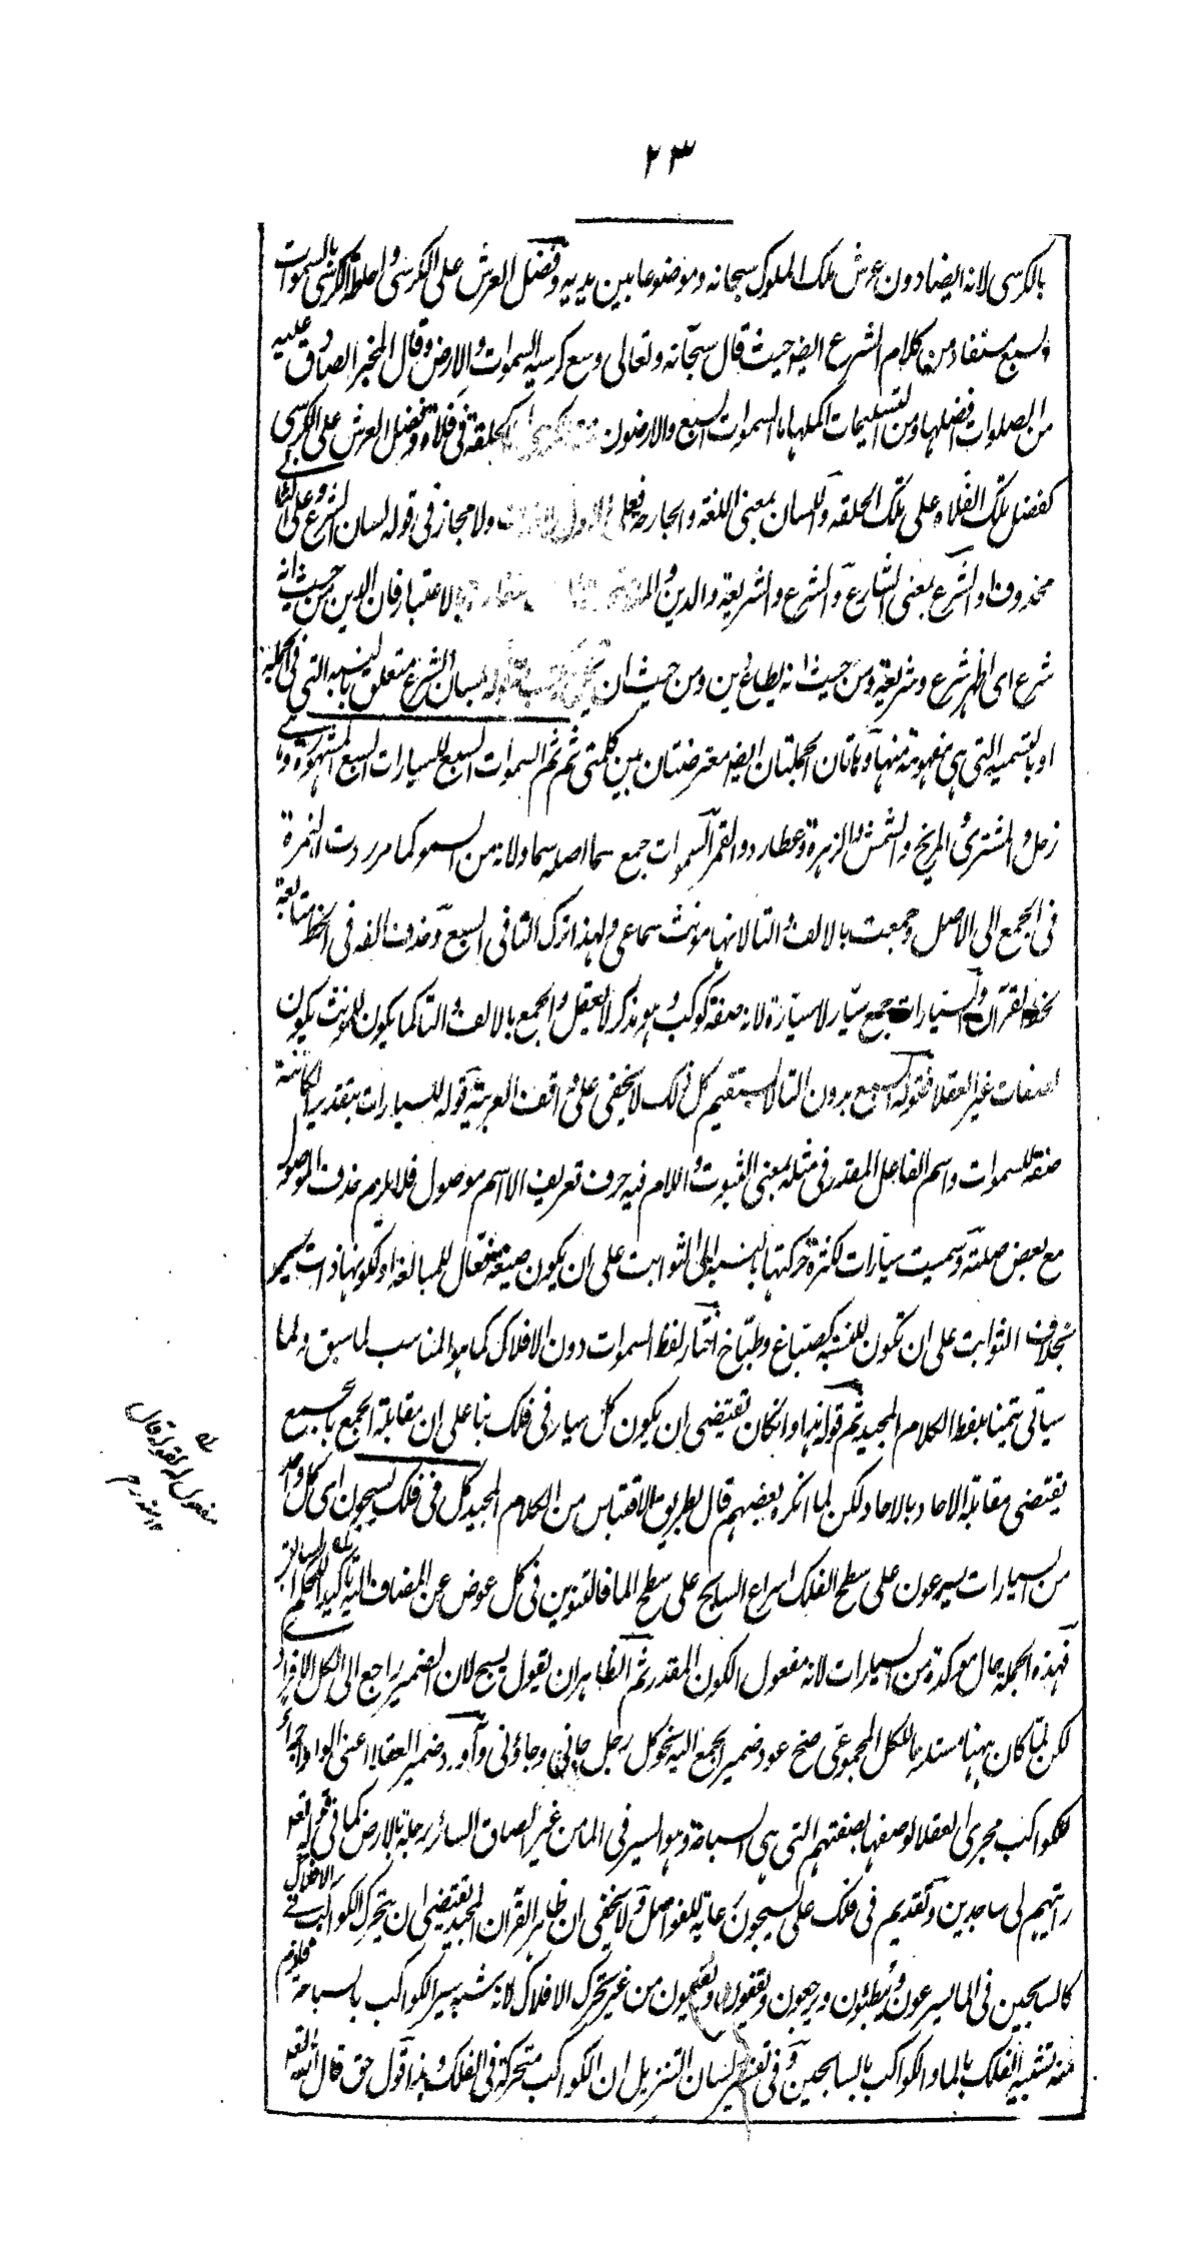 ٢٣
بالكرسى لانه ايضا دون عرش ملك الملوك سبحانه وموضوعا بين يديه وفضل العرش على الكرسى واحاطة الكرسى بالسموات
السبع مستفاد من كلام الشرع ايضا حيث قال سبحانه وتعالى وسع كرسيه السموات والارض وقال المخبر الصادق عليه
من الصلوات افضلها ومن التسليمات اكملها ما السموات السبع والارضون كحلقة فى فلاة وفضل العرش على الكرسى
كفضل تلك الفلاة على تلك الحلقة واللسان بمعنى اللغة والجارحة فعلى الاول ولا مجاز فى قوله لسان الشرع وعلى الثانى
محذوف او الشرع بمعنى الشارع والشرع والشريعة والدين بالاعتبار فان الدين من حيث انه
شرع اى اظهر شرع وشريعة ومن حيث انه يطاع دين ومن حيث ان بلسان الشرع متعلق بالنسبة التى فى الجملة
او بالتسمية التى هى مفهومة منها وهاتان الجملتان ايضا معترضتان بين كلمتى ثم ثم السموات السبع للسيارات السبع المشهورة وهى
زحل والمشترى والمريخ والشمس والزهرة وعطارد والقمر السموات جمع سما اصله سماو لانه من السمو كما مر ردت الهمزة
فى الجمع الى الاصل وجمعت بالالف والتا لانها مونث سماعى ولهذا ترك التا فى السبع وحذف الفه فى الخط متابعة
لخط القرآن والسيارات جمع سيار لا سيارة لانه صفة كوكب وهو مذكر لا يعقل والجمع بالالف والتا كما يكون للمونث يكون
لصفات غير العقلا فقوله السبع بدون التا لا يستقيم كل ذلك لا يخفى على واقف العربية قوله للسيارات بتقدير الكائنة
صفة للسموات واسم الفاعل المقدر فى مثله بمعنى الثبوت واللام فيه حرف تعريف لا اسم موصول فلا يلزم حذف الموصول
مع بعض صلته وسميت سيارات لكثرة حركتها بالنسبة الى الثوابت على ان يكون صيغة فعال للمبالغة او لكونها ذات سير
بخلاف الثوابت على ان تكون للنسبة كصباغ وطباخ اختار لفظ السموات دون الافلاك كما هو المناسب لما سبق ولما
سياتى تيمنا بلفظ الكلام المجيد ثم قوله هذا وان كان تقتضى ان يكون كل سيار فى فلك بنا على ان مقابلة الجمع بالجمع
يقتضى مقابلة الاحاد بالاحاد لكن لما انكره بعضهم قال بطريق الاقتباس من الكلام المجيد كل فى فلك يسبحون اى كل واحد
من السيارات يسرعون على سطح الفلك اسراع السابح على سطح الما فالتنوين فى كل عوض عن المضاف اليه تاكيدا للحكم السابق
فهذه الجملة حال موكدة من السيارات لانه مفعول الكون المقدر ثم الظاهر ان يقول يسبح لان الضمير راجع الى الكل الافرادى
لكن لما كان ههنا مستلزما للكل المجموعى صح عود ضمير الجمع اليه نحو كل رجل جائنى وجاؤنى واورد ضمير العقلا اعنى الواو اجراء
للكواكب مجرى العقلا لوصفها بصفتهم التى هى السباحة وهو السير فى الما من غير الصاق السائر رجله بالارض كما فى قوله تعالى
رايتهم لى ساجدين وتقديم فى فلك على يسبحون رعاية للفواصل ولا يخفى ان ظاهر القرآن المجيد يقتضى ان يتحرك الكواكب فى الافلاك
كالسابحين فى الما يسرعون ويبطئون ويرجعون ويقفون ويقيمون من غير تحرك الافلاك لانه شبه سير الكواكب بالسباحة فلزم
منه تشبيه الفلك بالما والكواكب بالسابحين وفى تفسير لسان التنزيل ان الكواكب متحركة فى الفلك وهذا قول حق قال الله تعالى
مفعول له لقوله قال